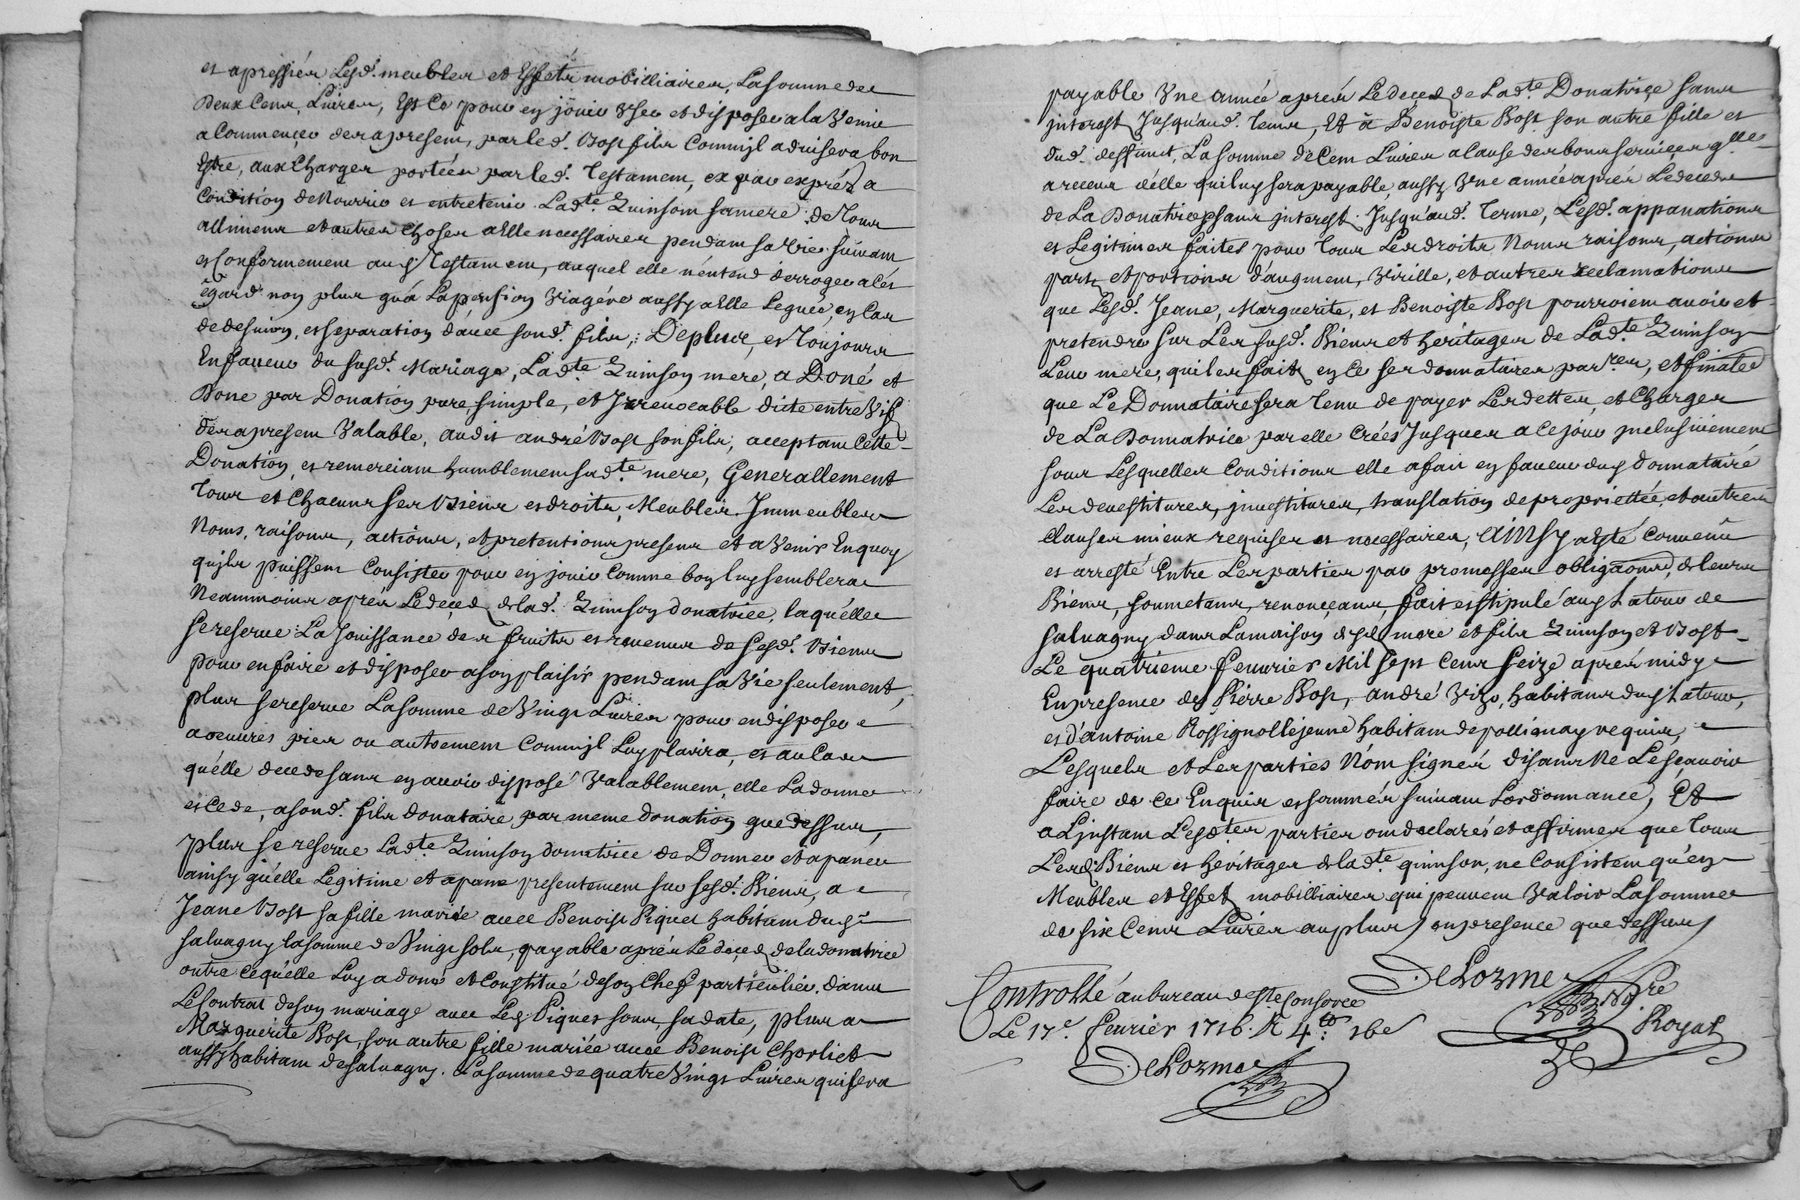 et apressiér Lesd. meubles et Effets mobilliaires, La somme de
Deux Cens Livres, Est Ce pour en joüir User et disposer a la Venir
a Commencer des apresent, par led. Bost fils Comm'jl advisera bon
Estre, aux Charges portées par led. Testament, et par exprés a
Condition de Nourrir et entretenir Lad.te Quinson sa mere de Tous
allimens et autres Choses a Elle necessaires pendant sa Vie suivant
et Conformement aud. Testament, auquel elle n'entend derroger a cet
Egard non plus qu'à La pension Viagére aussy a Elle Leguée, en Cas
de desunion, et separation d'avec sond. fils; De plus, et Toujours
En faveur du susd. Mariage, Lad.te Quinson mere, a Doné et
Done par Donation pure, simple, et Jrrevocable dicte entre Vifs
dés apresent Valable, audit andré Bost son fils, acceptant Cette
Donation, et remerciant humblement sad.te mere, Generallement
Tous et Chacuns ses Biens et droits, Meubles Jmmeubles
Noms, raisons, actions, et pretentions presens et a Venir En quoy
qu'jls puissent Consister pour en joüir Comme bon luy semblera
Neammoins aprés Le decez de lad. Quinson donatrice, laquelle
se reserve La Joüissance des fruits et revenus de sesd. Biens
pour en faire et disposer a son plaisir pendant sa Vie seulement,
plus se reserve La somme de Vingt Livres pour en disposer
a oeuvres pies ou autrement Comm'jl Luy plaira, et au Cas
qu'elle decede sans en avoir disposé Valablement, elle La donne
et Cede, a sond. fils donataire par meme donation que dessus,
plus se reserve Lad.te Quinson donatrice de Donner et apaner
ainsy qu'elle Legitime et apane presentement sur sesd. Biens, a
Jeane Bost sa fille mariée avec Benoist Piquet habitant dud.
salvagny la somme de Vingt sols, payable aprés Le decez de la donatrice
outre ce qu'elle Luy a doné et Constitué de son Chef particulier dans
Le Contrat de son mariage avec Led. Piquet sous sa date, plus a
Marguerite Bost, son autre fille mariée avec Benoist Chorliet
aussy habitant de Salvagny. La somme de quatre Vingt Livres qui sera
payable Vne année aprés Le decez de Lad.te Donatriçe sans
interest Jusqu'aud. Tems, Et à Benoiste Bost son autre fille et
dud. deffunt, La somme de Cent Livres a Cause des bons services q'lle
a receus d'elle qui luy sera payable, aussy Vne année aprés Le decez
de La Donatrice sans jnterest Jusqu'aud. Terme, Lesd. appanations
et Legitimes faites pour Tous Les droits Noms raisons, actions
parts et portions d'augment, Virille, et autres reclamations
que Lesd. Jeane, Marguerite, et Benoiste Bost pourroient avoir et
pretendre sur Les susd. Biens et heritages de Lad.te Quinson
Leur mere, qui les fait en ce ses donnataires par.res,
que Le Donnataire sera Tenu de payer Les dettes, et Charges
de La Donnatrice par elle Crées Jusques a ce jour jnclusivement
sous Lesquelles Conditions elle a fait en faveur dud. donnataire
Les devestitures, jnvestitures, translation de proprietée et autres
Clauses mieux requises et necessaires, Ainsy a Esté Convenû
et arresté Entre Les parties par promesses obligaôns, de leurs
Biens, soumetans, renonçeans fait et stipulé aud. Latour de
Salvagny dans La maison desd. mere et fils Quinson et Bost
Le quatrieme fevrier Mil sept Cens seize aprés midy
En presence de Pierre Bost, andré Vizo, habitans dud. Latour,
et d'antoine Rossignol le jeune habitant de pollionay requis,
Lesquels et Les parties N'ont signé disans Ne Le sçavoir
faire de ce Enquis et sommés suivant L'ordonnance, Et
a L'jnstant Lesd.tes parties ont declarés et affirmés que Tous
Lesd. Biens et heritages de lad.te quinson, ne Consistent qu'en
Meubles et Effets mobilliaires qui peuvent Valoir La somme
de six Cens Livres au plus en presence que dessus
DeLorme
N.re
Royal
Controllé au bureau de S.te Consorce
Le 17.e fevrier 1716. R 4.lt 16s
DeLorme